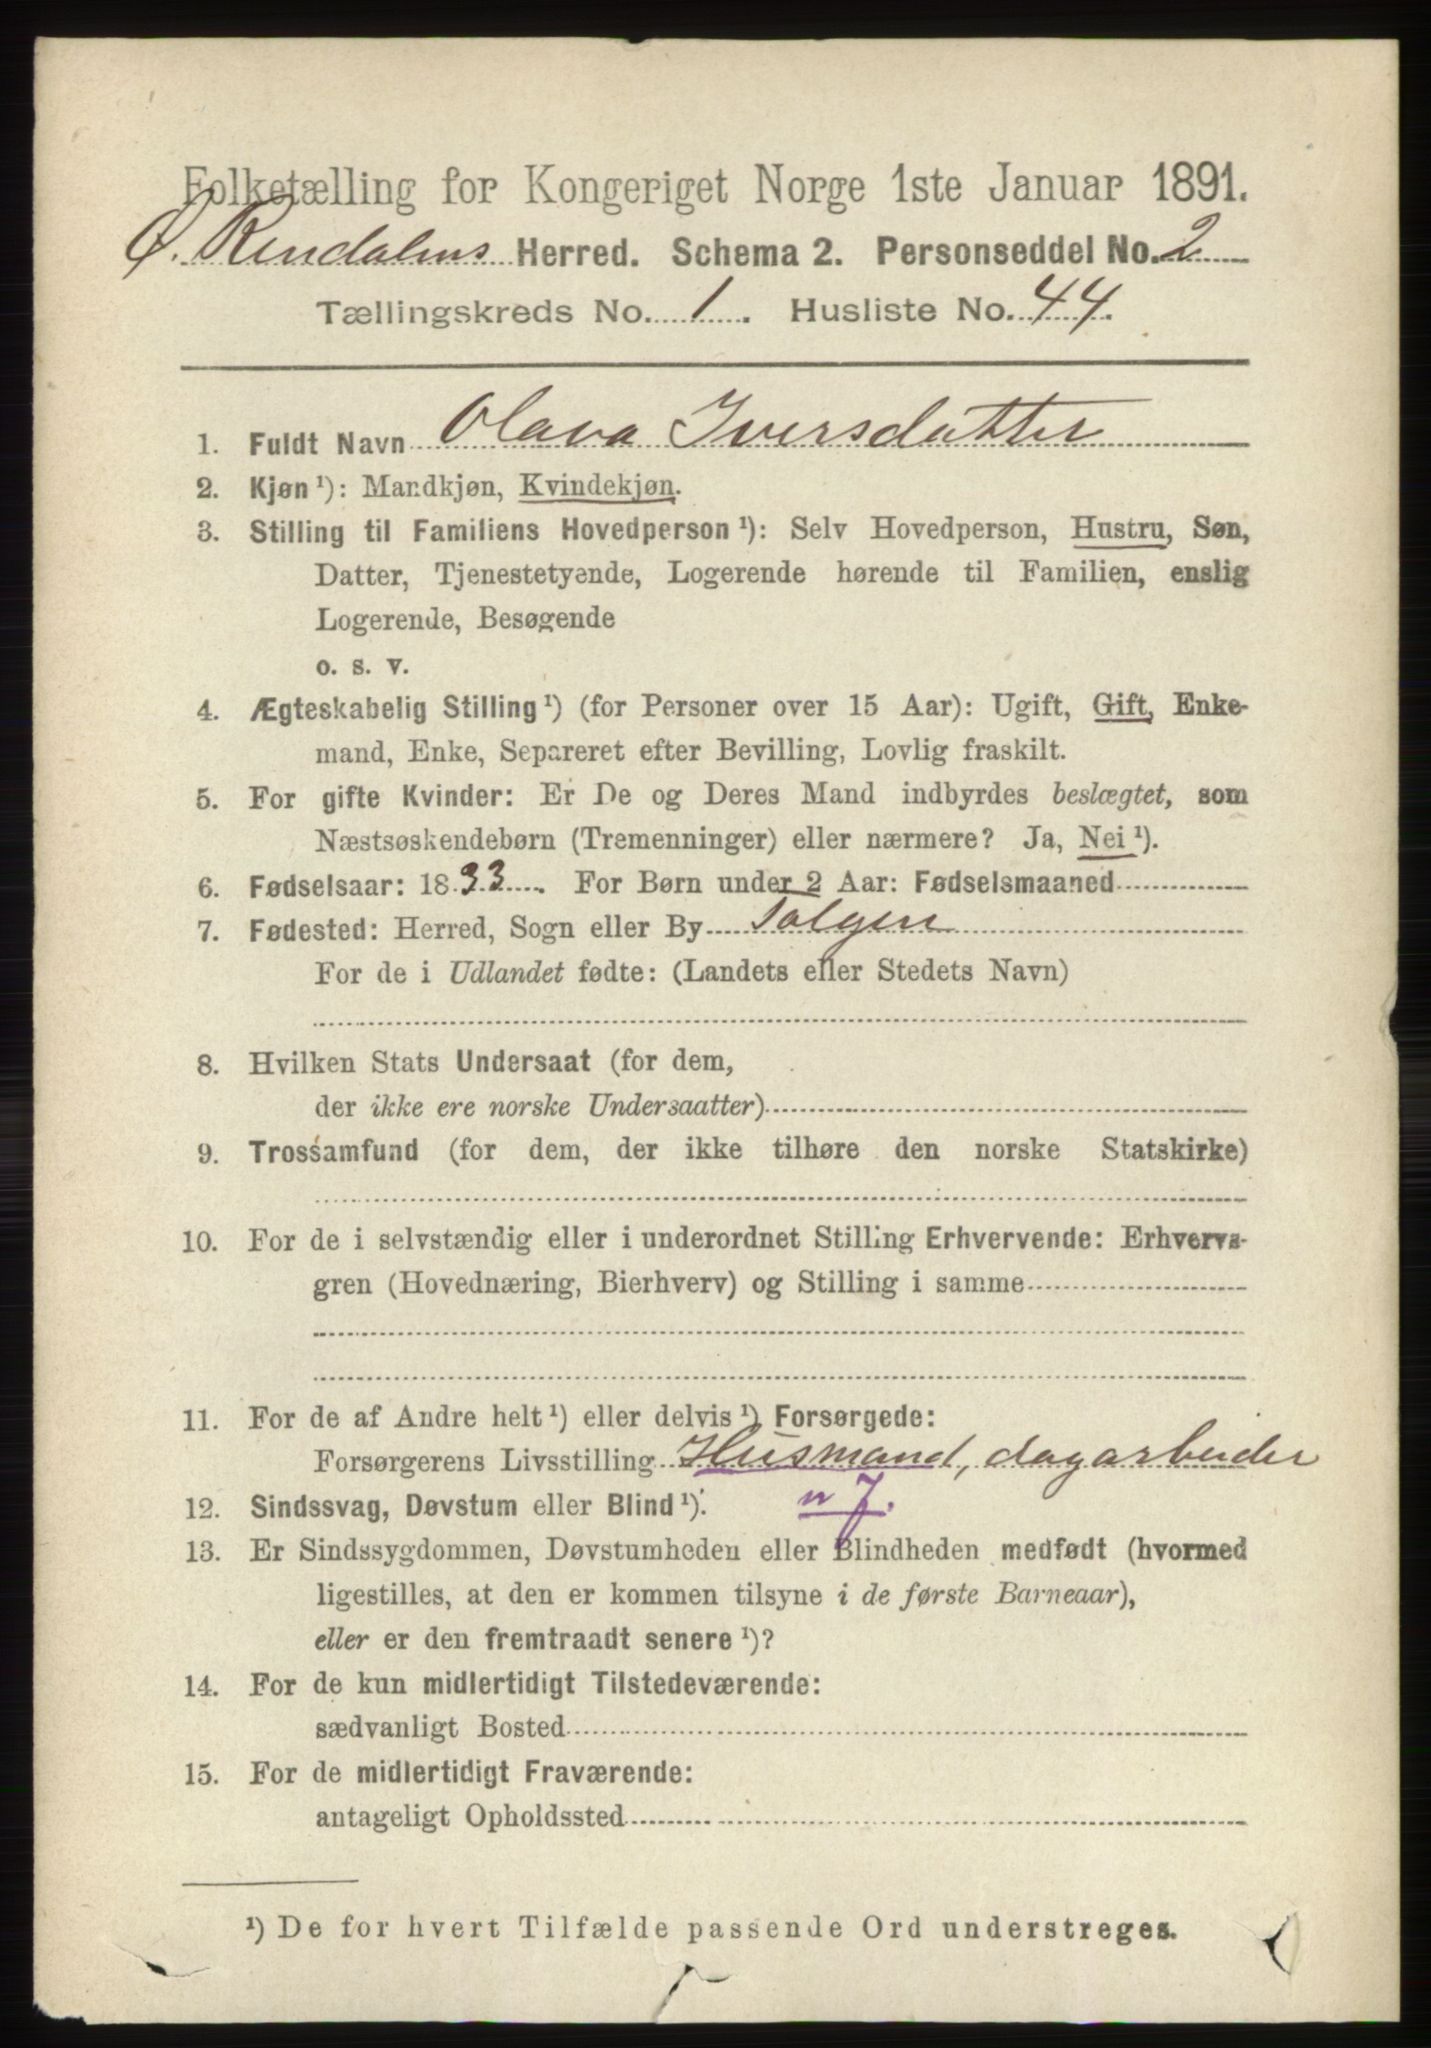 Folketælling for Kongeriget Norge 1ste Januar 1891.
Ø. Rendalens Herred. Schema 2. Personseddel No. 2
Tællingskreds No. 1. Husliste No. 44.
1. Fuldt Navn Olava Iversdatter
2. Kjøn ¹): Mandkjøn, Kvindekjøn.
3. Stilling til Familiens Hovedperson ¹): Selv Hovedperson, Hustru, Søn,
Datter, Tjenestetyende, Logerende hørende til Familien, enslig
Logerende, Besøgende
o. s. v.
4. Ægteskabelig Stilling ¹) (for Personer over 15 Aar): Ugift, Gift, Enke-
mand, Enke, Separeret efter Bevilling, Lovlig fraskilt.
5. For gifte Kvinder: Er De og Deres Mand indbyrdes beslægtet, som
Næstsøskendebørn (Tremenninger) eller nærmere? Ja, Nei ¹).
6. Fødselsaar: 1833. For Børn under 2 Aar: Fødselsmaaned
7. Fødested: Herred, Sogn eller By Tolgen
For de i Udlandet fødte: (Landets eller Stedets Navn)
8. Hvilken Stats Undersaat (for dem,
der ikke ere norske Undersaatter)
9. Trossamfund (for dem, der ikke tilhøre den norske Statskirke)
10. For de i selvstændig eller i underordnet Stilling Erhvervende: Erhvervs-
gren (Hovednæring, Bierhverv) og Stilling i samme
11. For de af Andre helt ¹) eller delvis ¹) Forsørgede:
Forsørgerens Livsstilling Husmand, dagarbeider
12. Sindssvag, Døvstum eller Blind ¹). n 7.
13. Er Sindssygdommen, Døvstumheden eller Blindheden medfødt (hvormed
ligestilles, at den er kommen tilsyne i de første Barneaar),
eller er den fremtraadt senere ¹)?
14. For de kun midlertidigt Tilstedeværende:
sædvanligt Bosted
15. For de midlertidigt Fraværende:
antageligt Opholdssted
¹) De for hvert Tilfælde passende Ord understreges.